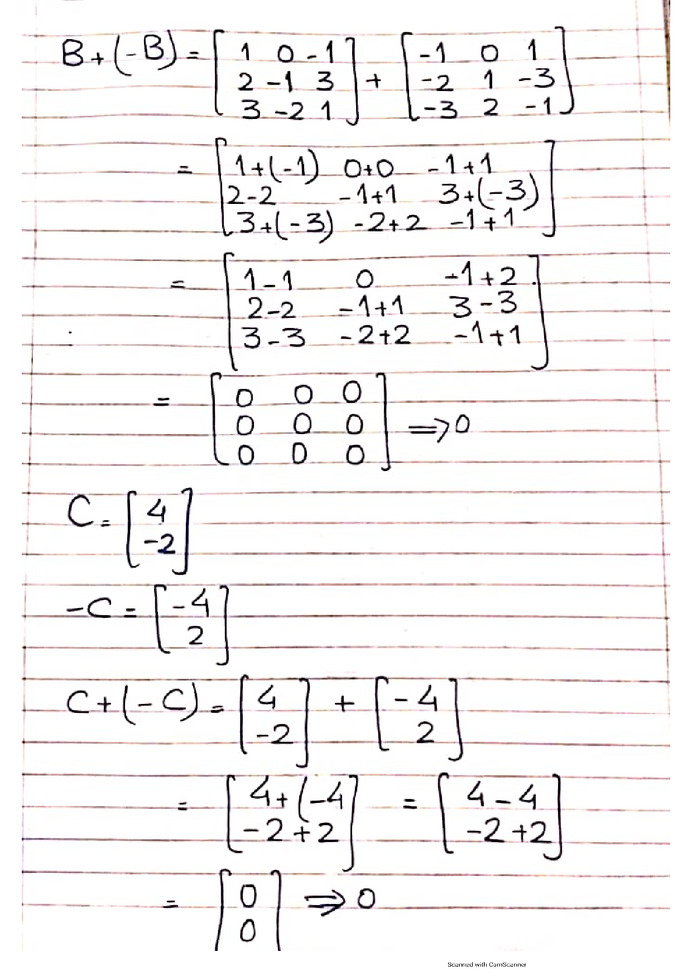 B+(-B) = [1 0 -1] + [-1 0 1]
[2 -1 3] [-2 1 -3]
[3 -2 1] [-3 2 -1]
= [1+(-1) 0+0 -1+1]
[2-2 -1+1 3+(-3)]
[3+(-3) -2+2 -1+1]
= [1-1 0 -1+2]
[2-2 -1+1 3-3]
[3-3 -2+2 -1+1]
= [0 0 0]
[0 0 0] ⇒0
[0 0 0]
C = [4]
[-2]
-C = [-4]
[2]
C+(-C) = [4] + [-4]
[-2] [2]
= [4+(-4] = [4-4]
[-2+2] [-2+2]
= [0] ⇒0
[0]
Scanned with CamScanner